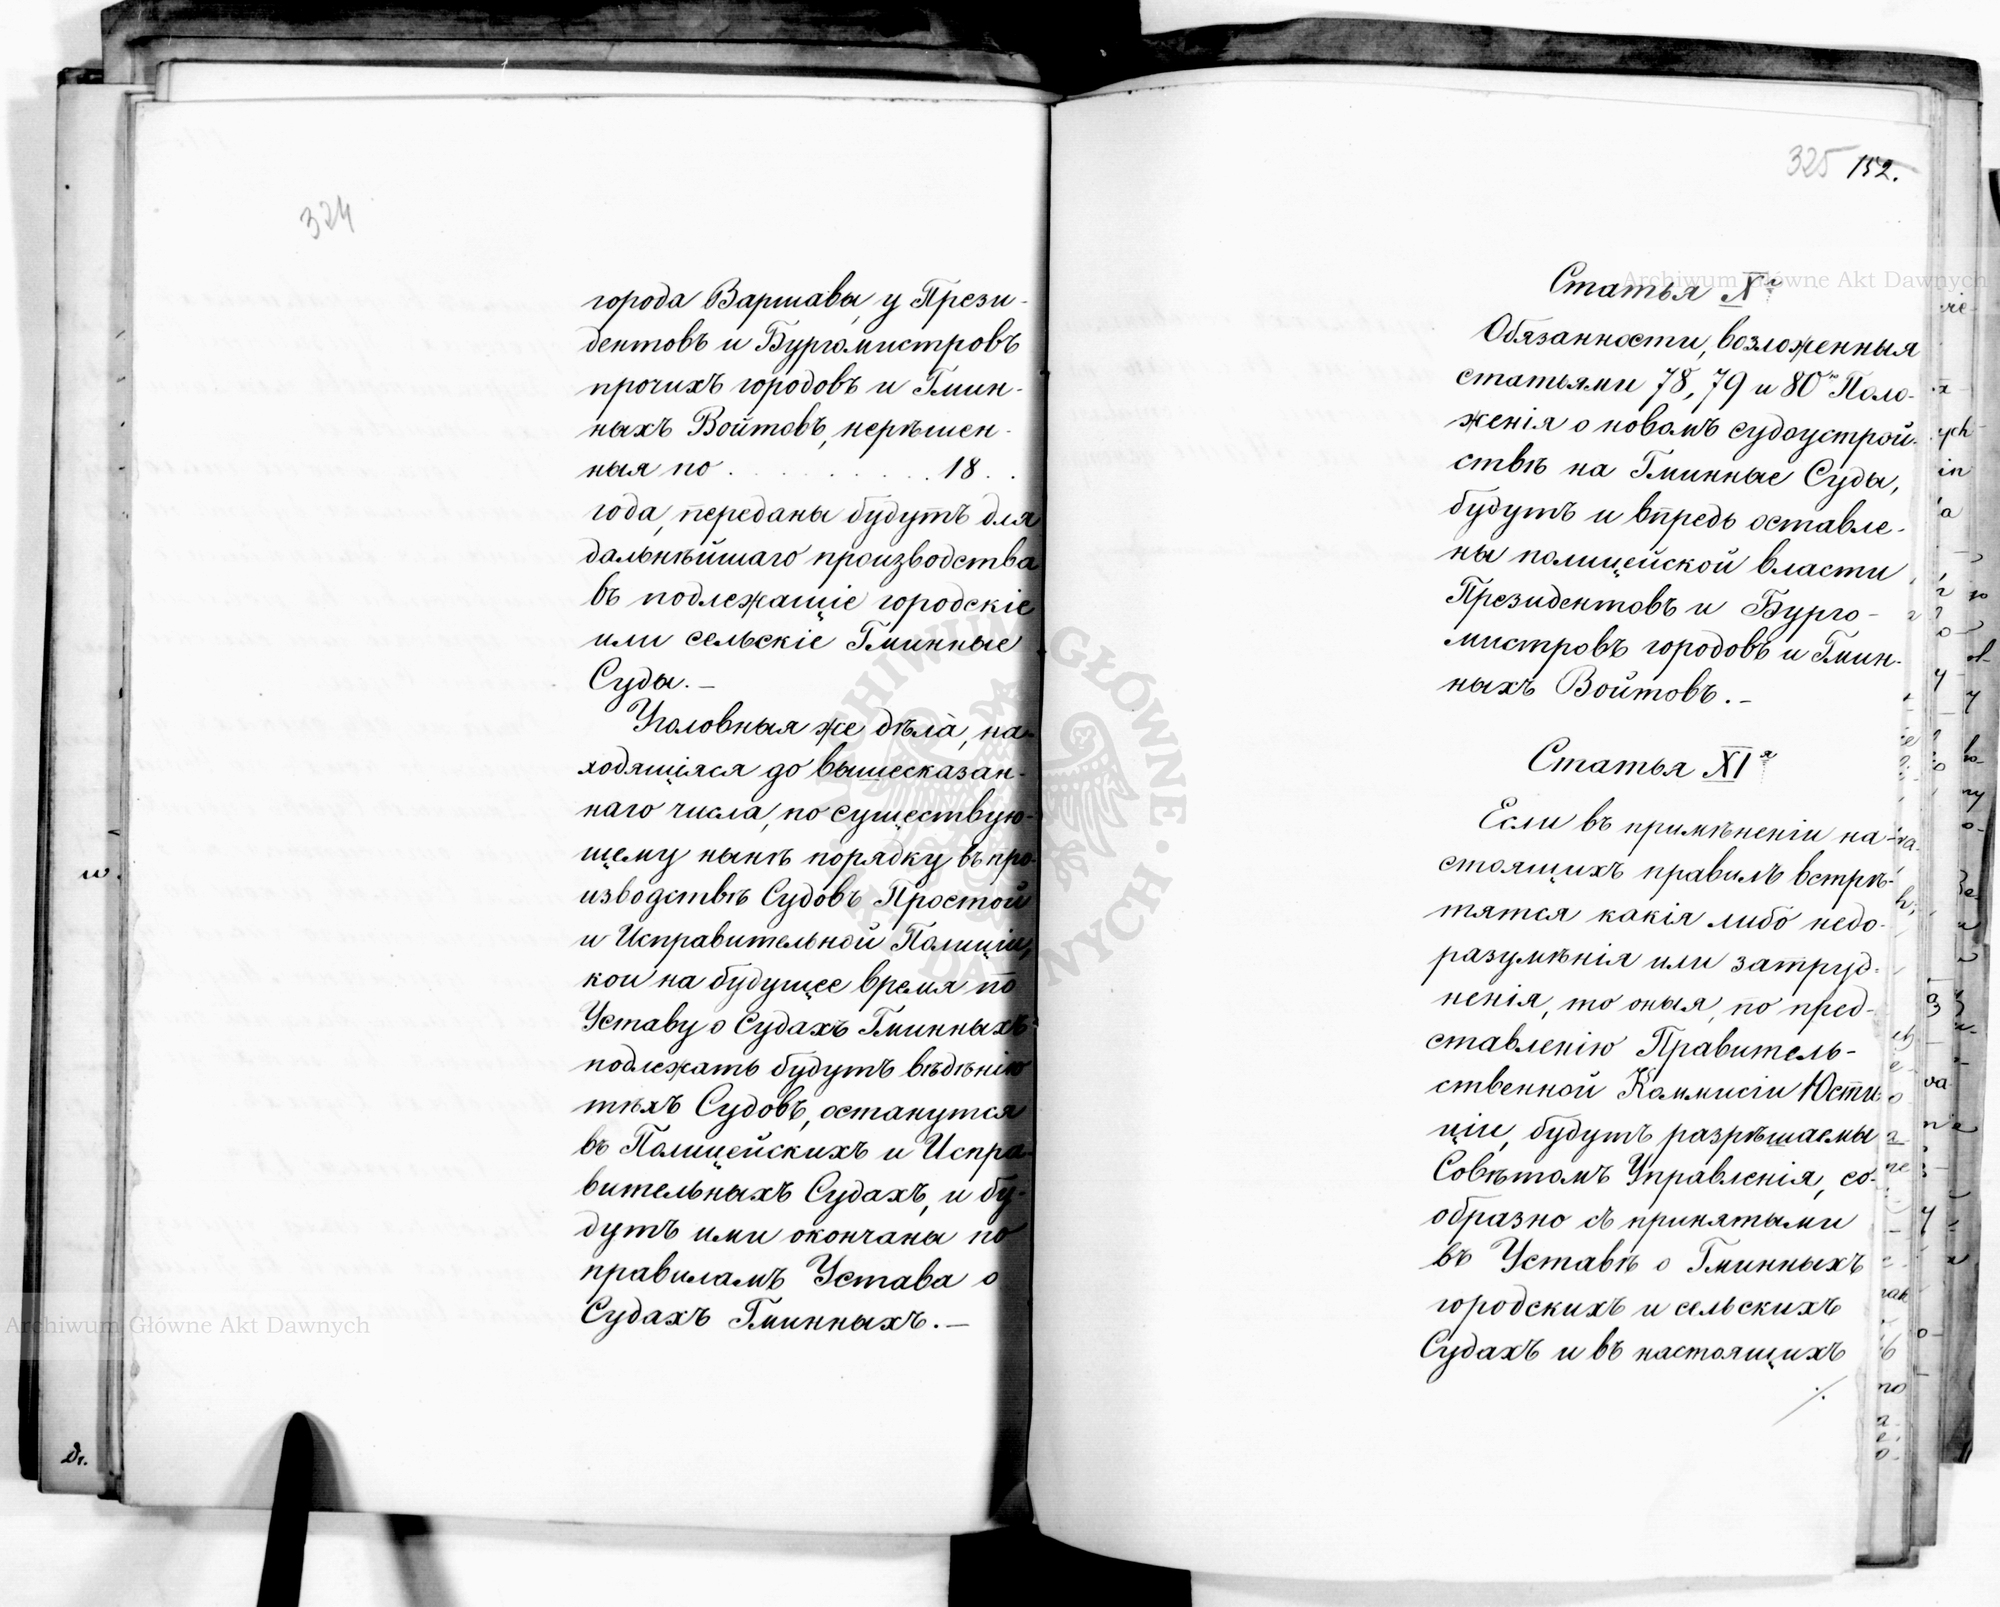 324
города Варшавы, у Прези-
дентовъ и Бургомистровъ
прочихъ городовъ и Гмин-
ныхъ Войтовъ, нерѣшен-
ныя по . . . . . . . . . 18 . .
года, переданы будутъ для
дальнѣйшаго производства
въ подлежащіе городскіе
или сельскіе Гминные
Суды.—
Уголовныя же дѣла, на-
ходящіяся до вышесказан-
наго числа, по существую-
щему нынѣ порядку въ про-
изводствѣ Судовъ Простой
и Исправительной Полиціи,
кои на будущее время по
Уставу о Судахъ Гминныхъ
подлежать будутъ вѣдѣнію
тѣхъ Судовъ, останутся
въ Полицейскихъ и Испра-
вительныхъ Судахъ, и бу-
дутъ ими окончаны по
правиламъ Устава о
Судахъ Гминныхъ.—
325 152.
Статья Xя
Обязанности, возложенныя
статьями 78, 79 и 80ю Поло-
женія о новомъ судоустрой-
ствѣ на Гминные Суды,
будутъ и впредь оставле-
ны полицейской власти
Президентовъ и Бурго-
мистровъ городовъ и Гмин-
ныхъ Войтовъ.—
Статья XIя
Если въ примѣненіи на-
стоящихъ правилъ встрѣ-
тятся какія либо недо-
разумѣнія или затруд-
ненія, то оныя, по пред-
ставленію Правитель-
ственной Коммисіи Юсти-
ціи, будутъ разрѣшаемы
Совѣтомъ Управленія, со-
образно съ принятыми
въ Уставѣ о Гминныхъ
городскихъ и сельскихъ
Судахъ и въ настоящихъ
./.
Archiwum Główne Akt Dawnych
Archiwum Główne Akt Dawnych
ARCHIWUM GŁÓWNE AKT DAWNYCH